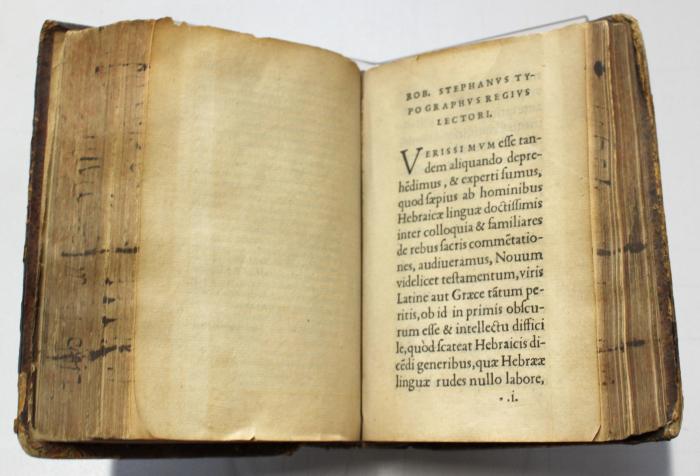 ROB. STEPHANVS TY-
POGRAPHVS REGIVS
LECTORI.
VERISSIMVM esse tan-
dem aliquando depre-
hẽdimus, & experti sumus,
quod sæpius ab hominibus
Hebraicæ linguæ doctissimis
inter colloquia & familiares
de rebus sacris commẽtatio-
nes, audiueramus, Nouum
videlicet testamentum, viris
Latine aut Græce tãtum pe-
ritis, ob id in primis obscu-
rum esse & intellectu diffici
le, quòd scateat Hebraicis di-
cẽdi generibus, quæ Hebrææ
linguæ rudes nullo labore,
.i.